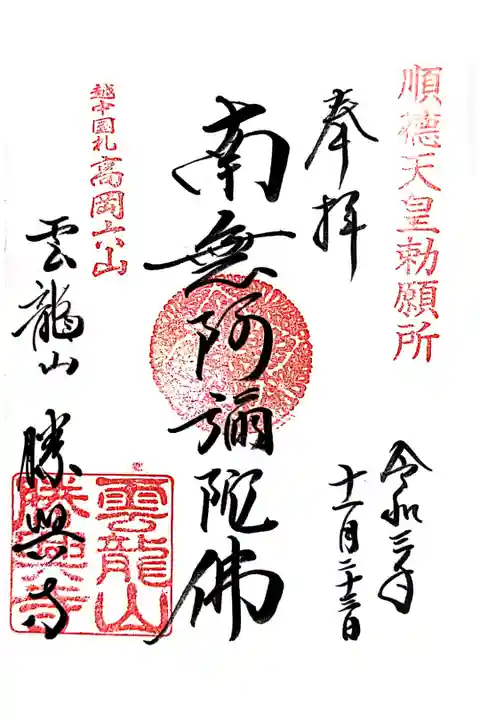 順德天皇勅願所
奉拝
令和三年
十一月二十三日
南無阿彌陀佛
越中國札
高岡六山
雲龍山 勝興寺
雲龍山
勝興寺